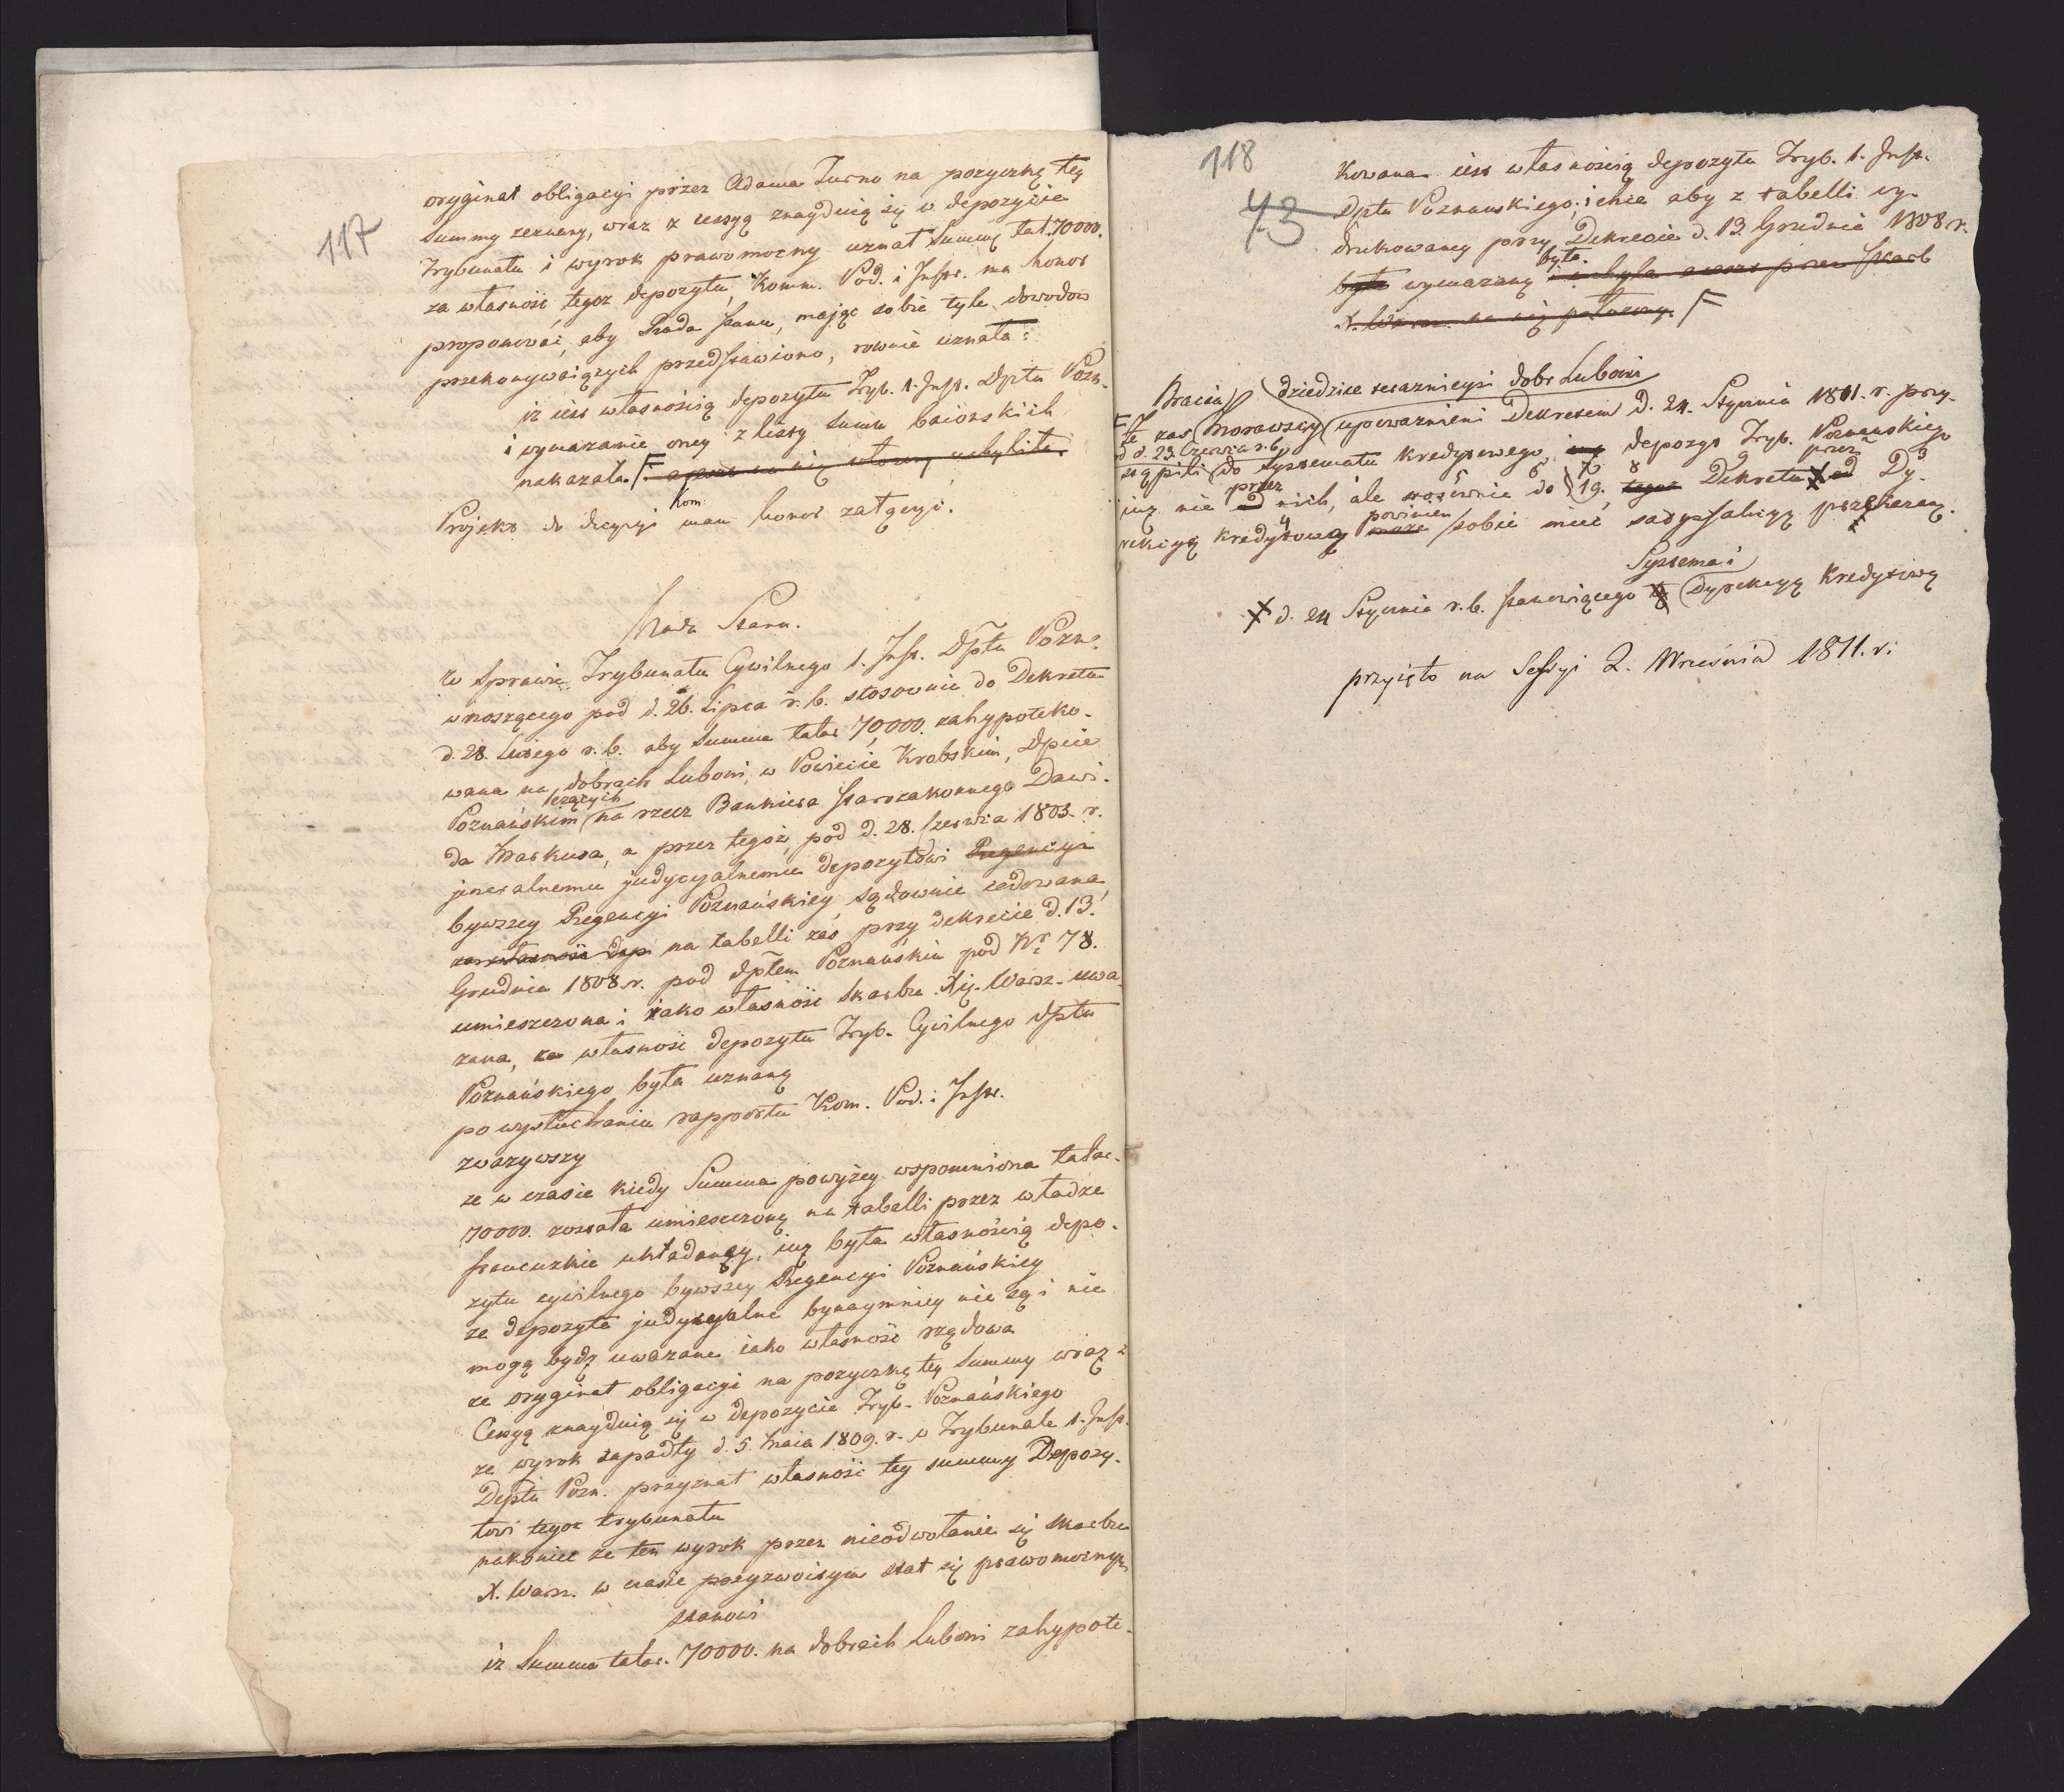 117
oryginał obligacyi przez Adama Turno na pozyczkę tey
Summy zeznaney, wraz z cessyą znayduią się w depozycie
Trybunału i wyrok prawomocny uznał Summę tal. 70000.
za własność tegoz depozytu, Komm. Pod. i Instr. ma honor
proponować, aby Rada Stanu, maiąc sobie tyle dowodow
przekonywaiących przedstawiono, rownie uznała:
iz iest własnością depozytu Tryb. 1. Inst. Dptu Pozn.
i wymazanie oney z listy summ baiońskich
nakazała.
Projekt do decyzyi Kom. mam honor załączyć.
Rada Stanu.
W Sprawie Trybunału Cywilnego 1. Inst. Dptu Pozn.
wnoszącego pod d. 26. Lipca r. b. stosownie do Dekretu
d. 28. Lutego r. b. aby Summa talar 70,000. zahypoteko-
wana na dobrach Luboni, w Powiecie Krobskim, Dpcie
Poznańskim leżących na rzecz Bankiera starozakonnego Dawi-
da Markusa, a przez tegoż, pod d. 28. Czerwca 1803. r.
jeneralnemu judycyalnemu depozytowi Regencyi
bywszey Regencyi Poznańskiey, sądownie cedowana,
za własność dep. na tabelli zaś przy dekrecie d. 13.
Grudnia 1808. r. pod dptem Poznańskim pod Nr 78.
umieszczona i jako własność Skarbu Xię. Warsz. uwa-
żana, za własność depozytu Tryb. Cywilnego dptu
Poznańskiego była uznaną
po wysłuchaniu rapportu Kom. Pod. i Instr.
zwazywszy
ze w czasie kiedy Summa powyżey wspomniona talar.
70000. została umieszczoną na tabelli przez władze
francuzkie układaney, iuz była własnością depo-
zytu cywilnego bywszey Regencyi Poznańskiey
ze depozyta judycyalne bynaymniey nie są i nie
mogą bydz uwazane iako własność rządowa
ze oryginał obligacyi na pozyczkę tey Summy wraz z
Cessyą znayduią się w depozycie Tryb. Poznańskiego
ze wyrok zapadły d. 5. Maia 1809. r. w Trybunale 1. Inst.
Deptu Pozn. przyznał własność tey summy Depozy-
towi tegoz trybunału
nakoniec ze ten wyrok przez nieodwołanie się skarbu
X. Warsz. w czasie przyzwoitym stał się prawomocnym
stanowi
iz Summa talar. 70000. na dobrach Luboni zahypote-
118
73
kowana iest własnością depozytu Tryb. 1. Inst.
Dptu Poznańskiego, i chce aby z tabelli wy-
drukowaney przy Dekrecie d. 13. Grudnia 1808. r.
była wymazaną była. i uchyla areszt przez Skarb
X. Warsz. na nią połozony.
Bracia dziedzice terazniejsi dobr Luboni
że zaś Morawscy upoważnieni Dekretem d. 24. Stycznia 1811. r. przy-
od d. 23. Czerwca r. b.
stąpili do Systematu kredytowego, depozyt Tryb. Poznańskiego
iuz nie przez nich, ale stosownie do 19. tegoz Dekretu przez Dy-
rekcyą kredytową powinien sobie mieć satysfakcyą przekazaną.
Systema i
d. 24 Stycznia r. b. stanowiącego Dyrekcyą Kredytową
przyięto na Sessyi 2. Wrześnid 1811. r.